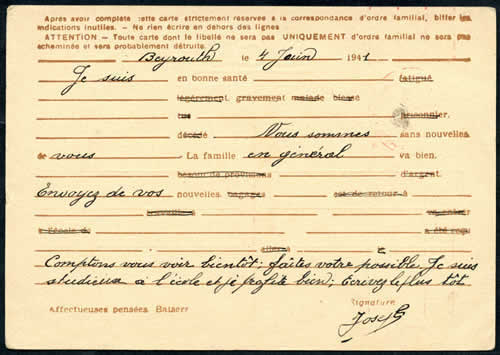 Après avoir complété cette carte strictement réservée à la correspondance d'ordre familial, biffer les
indications inutiles. — Ne rien écrire en dehors des lignes.
ATTENTION — Toute carte dont le libellé ne sera pas UNIQUEMENT d'ordre familial ne sera pas
acheminée et sera probablement détruite.
Beyrouth le 4 Juin 1941
Je suis en bonne santé fatigué
légèrement, gravement malade blessé
tué prisonnier,
décédé Vous sommes sans nouvelles
de vous . La famille en général va bien.
besoin de provisions d'argent.
Envoyez de vos nouvelles. bagages est de retour à
travaille à va entrer
à l'école de a été reçu
allera le
Comptons vous voir bientôt; faites votre possible. Je suis
studieux à l'école et je profite bien; Ecrivez le plus tôt
Signature
Affectueuses pensées. Baisers
Joseph